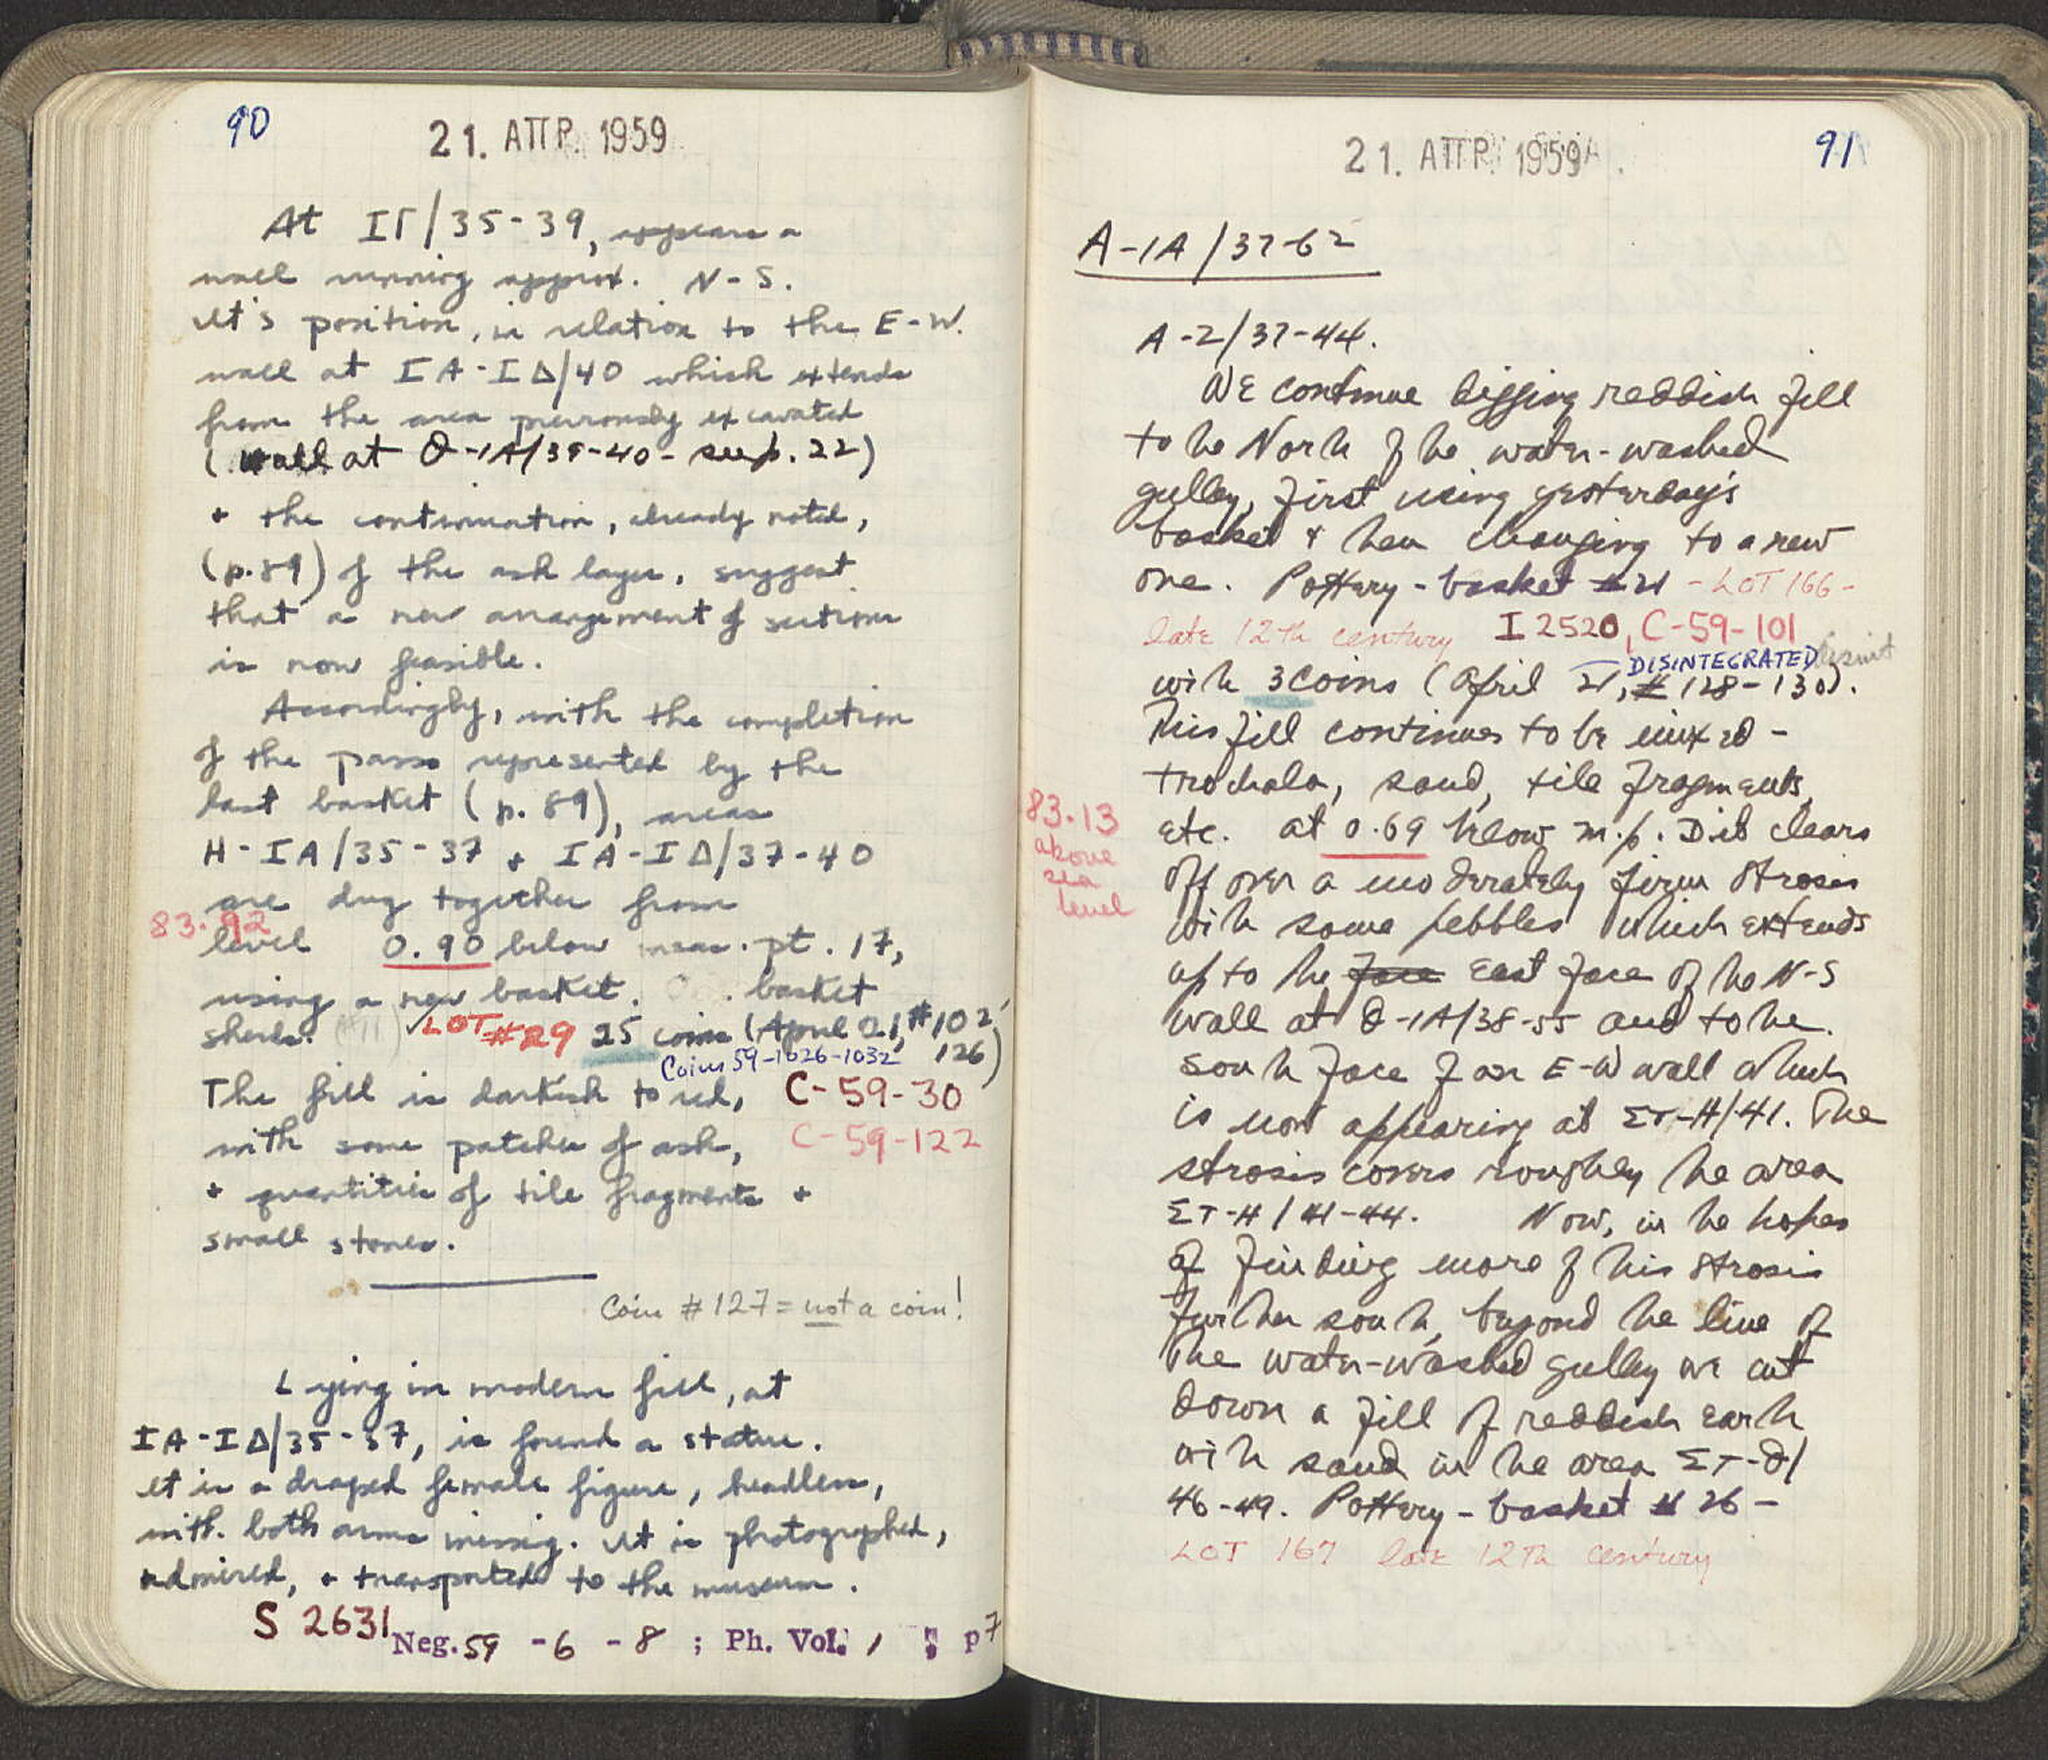 90
21. ΑΠΡ. 1959
At ΙΓ/35-39, appears a
wall running approx. N-S.
It's position, in relation to the E-W.
wall at ΙΑ-ΙΔ/40 which extends
from the area previously excavated
(wall at Θ-ΙΑ/39-40- see p. 22)
+ the continuation, already noted,
(p. 89) of the ash layer, suggest
that a new arrangement of sections
is now feasible.
Accordingly, with the completion
of the passo represented by the
last basket (p. 89), areas
Η-ΙΑ/35-37 + ΙΑ-ΙΔ/37-40
are dug together from
83.92
level 0.90 below meas. pt. 17,
using a new basket. basket
sherds. (#11) ✓ LOT #29 25 coins (April 21, #102-
126)
Coins 59-1026-1032
The fill is darkish to red, C-59-30
with some patches of ash, C-59-122
+ quantities of tile fragments +
small stones.
Coin #127 = not a coin!
Lying in modern fill, at
ΙΑ-ΙΔ/35-37, is found a statue.
It is a draped female figure, headless,
with both arms missing. It is photographed,
admired, + transported to the museum.
S 2631
Neg. 59 - 6 - 8 ; Ph. Vol. 1 ; p 7
91
21. ΑΠΡ. 1959
Α-ΙΑ/37-62
A-Z/37-44.
We continue digging reddish fill
to he North of he water-washed
gulley, first using yesterday's
basket + hen changing to a new
one. Pottery - basket #21 - LOT 166-
late 12th century I 2520, C-59-101
DISINTEGRATED disint
with 3 coins (April 21, # 128-130).
This fill continues to be mixed -
trochala, sand, tile fragments,
83.13
above
sea
level
etc. at 0.69 below m.p. Dit clears
off over a moderately firm strosis
with some pebbles which extends
up to he face east face of he N-S
wall at Θ-ΙΑ/38-55 and to he
south face of an E-W wall which
is now appearing at ΣΤ-Η/41. The
strosis covers roughly he area
ΣΤ-Η/41-44. Now, in he hopes
of finding more of his strosis
further south, beyond he line of
The water-washed gulley we cut
down a fill of reddish earh
with sand in he area ΣΤ-Θ/
46-49. Pottery - basket # 26 -
LOT 167 late 12th century